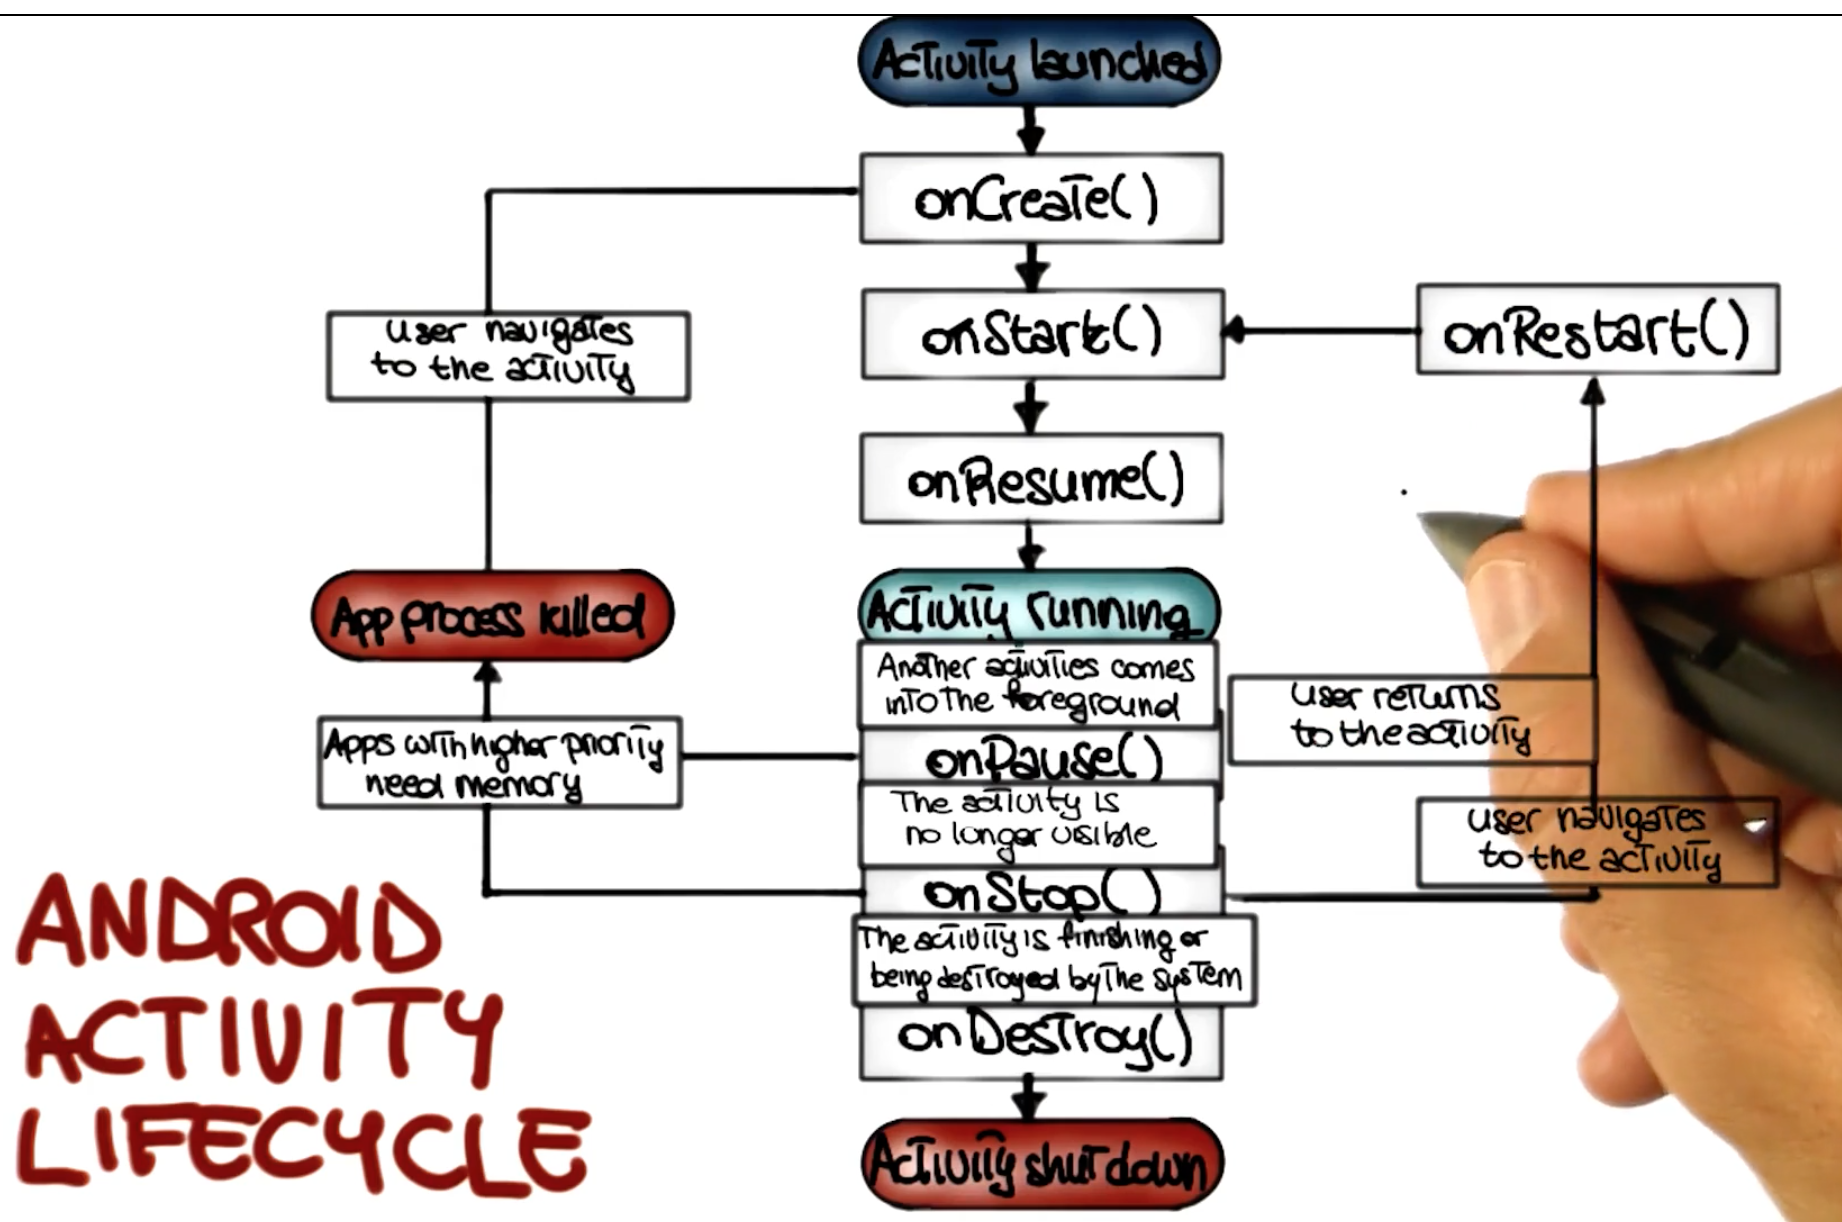 Activity launched
onCreate()
user navigates
to the activity
onStart()
onRestart()
onResume()
App process killed
Activity running
Another activities comes
into the foreground
user returns
to the activity
Apps with higher priority
need memory
onPause()
The activity is
no longer visible
user navigates
to the activity
onStop()
The activity is finishing or
being destroyed by the system
onDestroy()
Activity shut down
ANDROID
ACTIVITY
LIFECYCLE